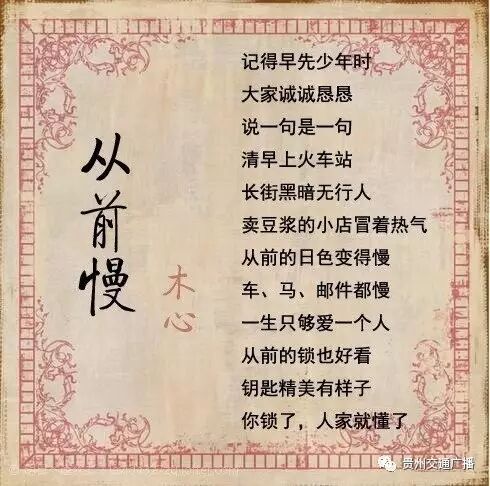 从前慢
木心
记得早先少年时
大家诚诚恳恳
说一句是一句
清早上火车站
长街黑暗无行人
卖豆浆的小店冒着热气
从前的日色变得慢
车、马、邮件都慢
一生只够爱一个人
从前的锁也好看
钥匙精美有样子
你锁了，人家就懂了
贵州交通广播